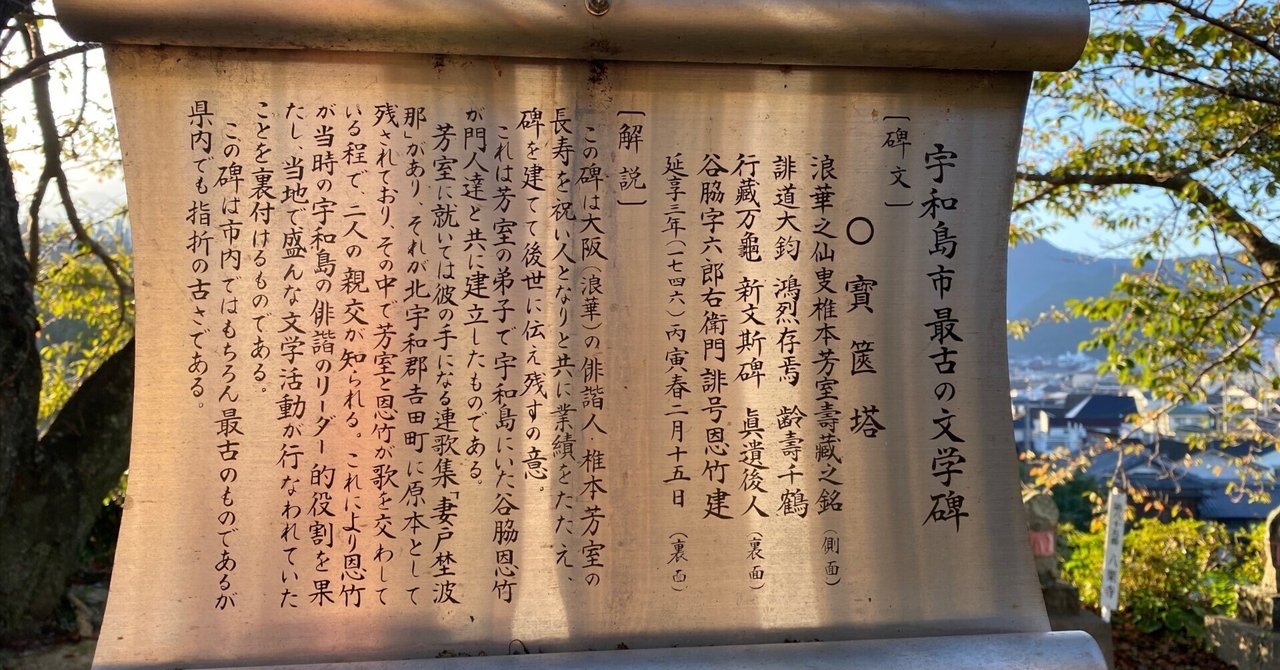 宇和島市最古の文学碑
〔碑文〕
〇寳篋塔
浪華之仙叟椎本芳室壽藏之銘(側面)
誹道大鈞 鴻烈存焉 齢壽千鶴
行藏万龜 新文斯碑 眞遺後人(裏面)
谷脇字六郎右衛門誹号恩竹建
延享三年(一七四六)丙寅春二月十五日(裏面)
〔解説〕
この碑は大阪(浪華)の俳諧人・椎本芳室の
長寿を祝い人となりと共に業績をたたえ、
碑を建てて後世に伝え残すの意。
これは芳室の弟子で宇和島にいた谷脇恩竹
が門人達と共に建立したものである。
芳室に就いては彼の手になる連歌集「妻戸埜波
那」があり、それが北宇和郡吉田町に原本として
残されており、その中で芳室と恩竹が歌を交わして
いる程で、二人の親交が知られる。これにより恩竹
が当時の宇和島の俳諧のリーダー的役割を果
たし、当地で盛んな文学活動が行なわれていた
ことを裏付けるものである。
この碑は市内ではもちろん最古のものであるが
県内でも指折の古さである。
八樂寺